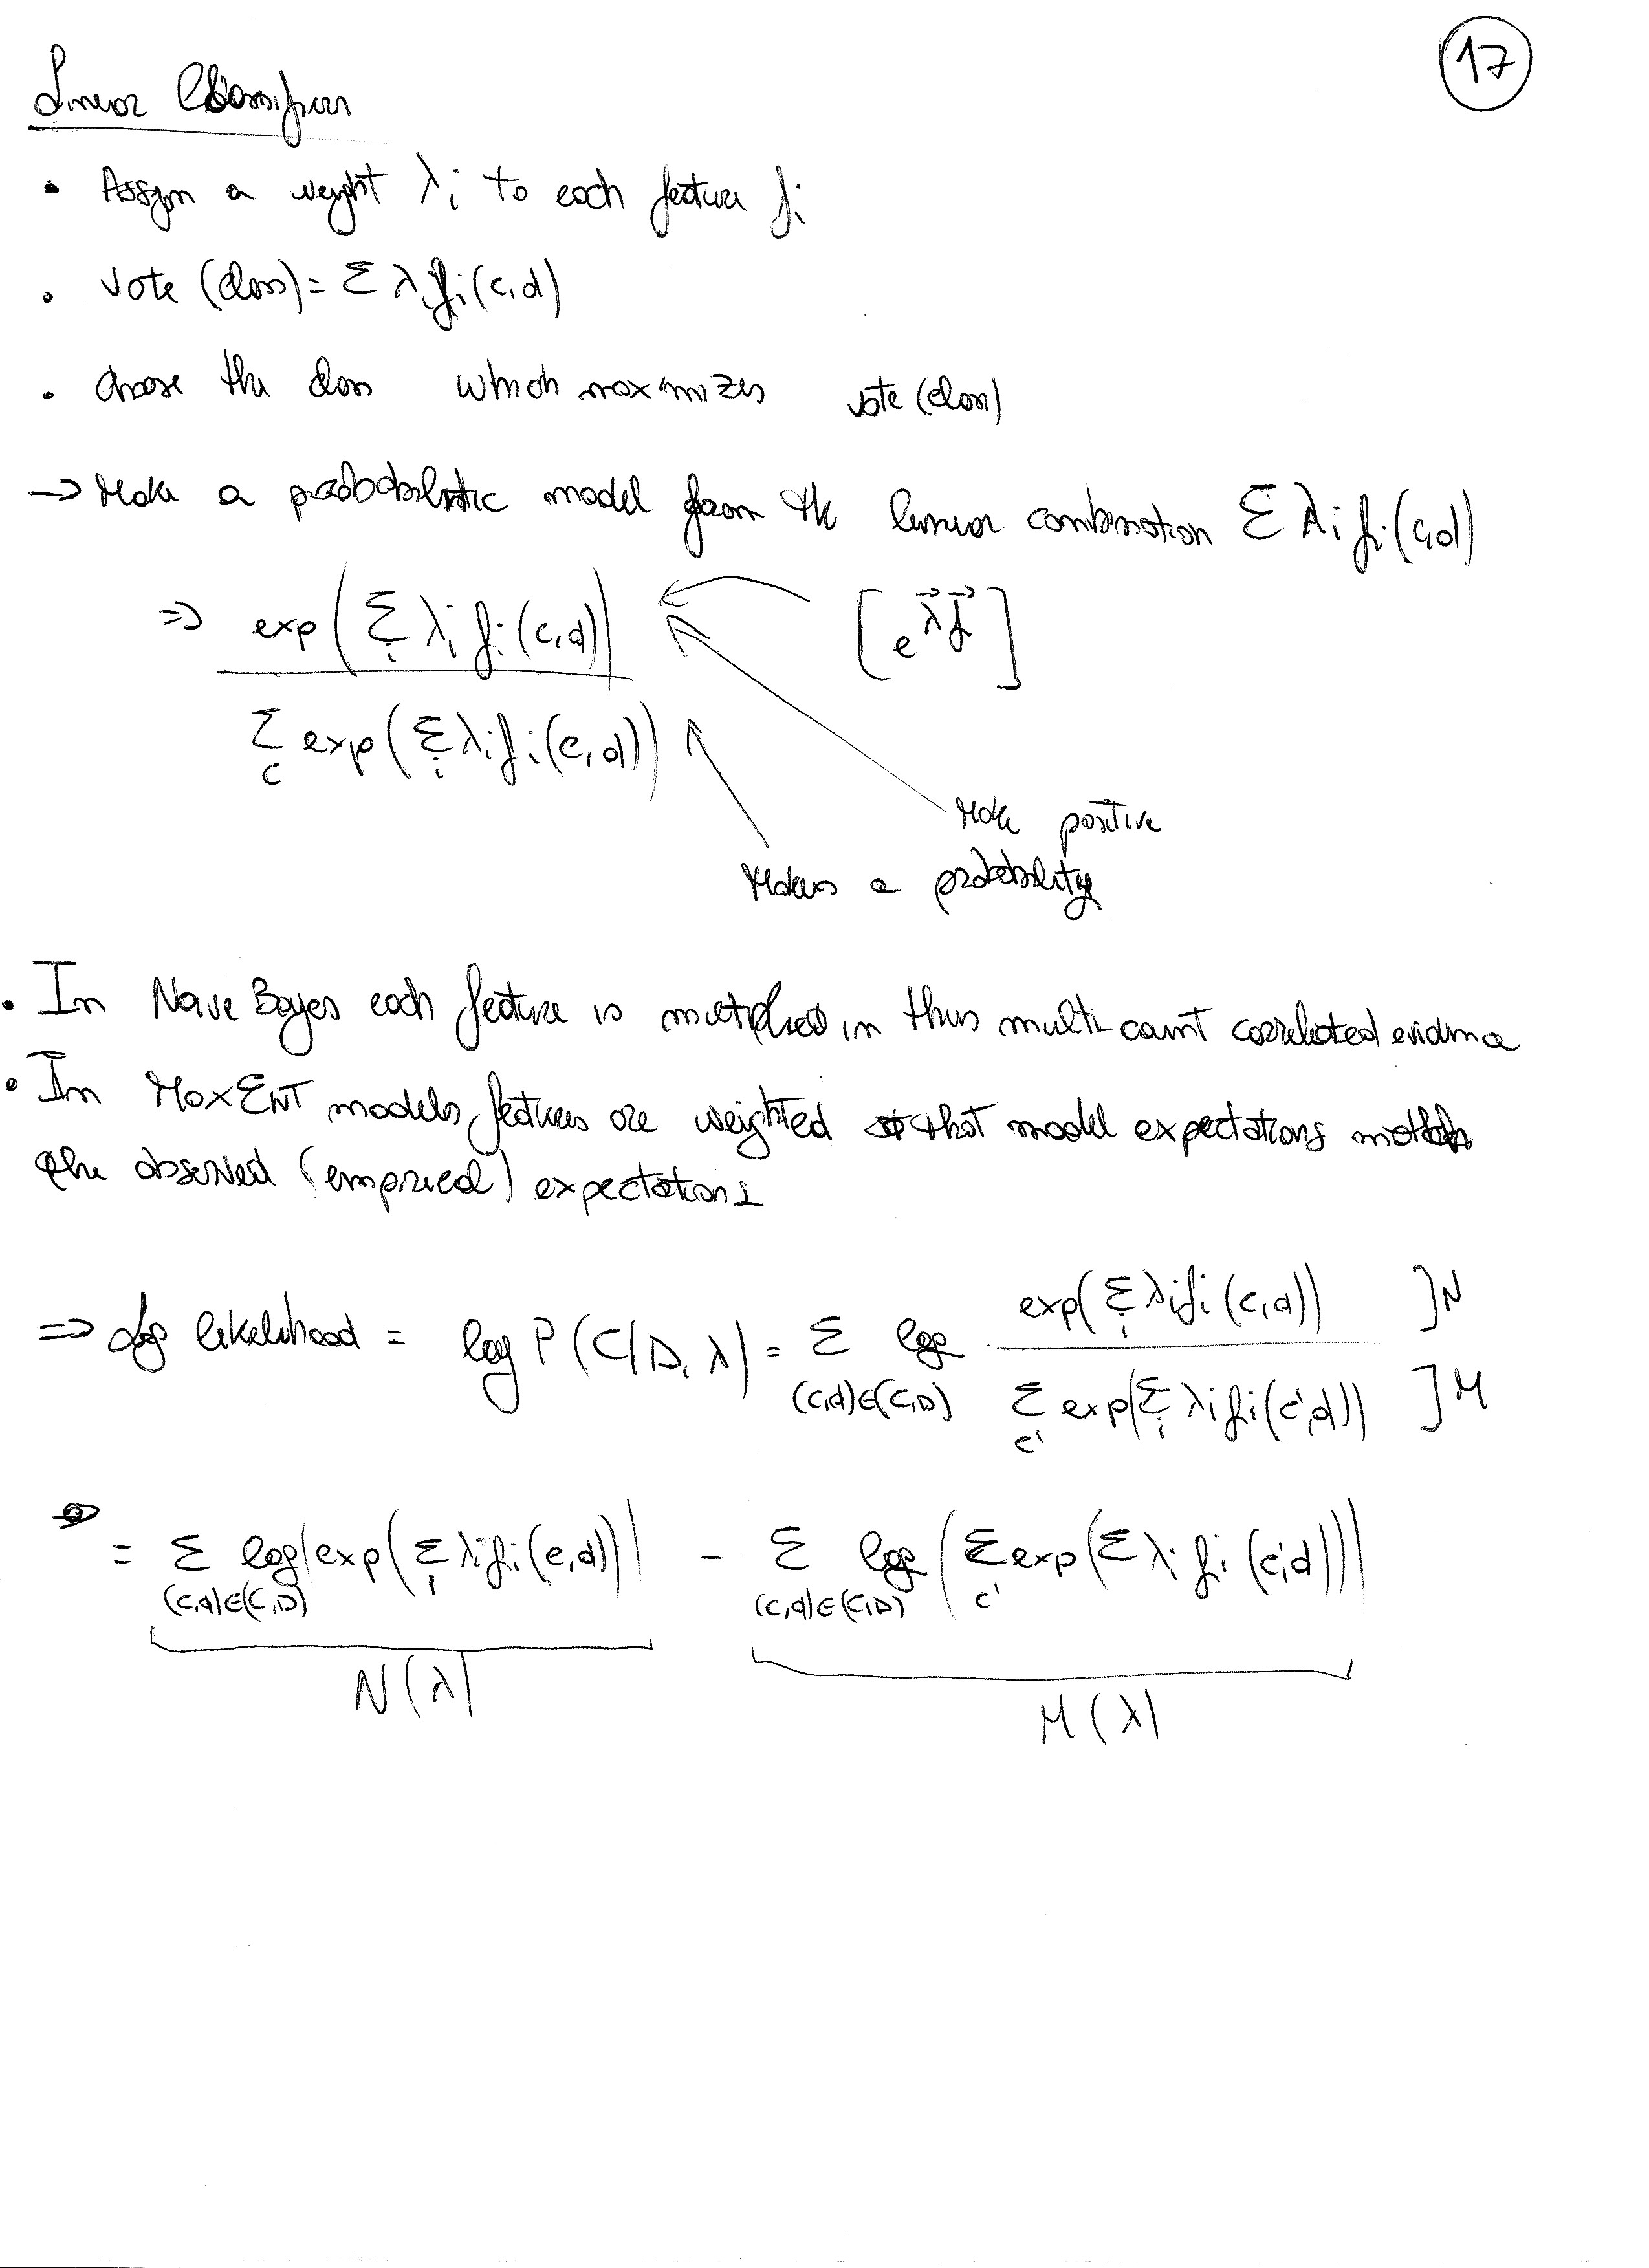 17
Linear Classifier
• Assign a weight λi to each feature fi
• vote (class) = Σ λi fi (c,d)
• choose the class which maximizes vote (class)
→ Make a probabilistic model from the linear combination Σ λi fi (c,d)
⇒ exp(Σi λi fi (c,d)) [e^λ⃗f⃗]
Σc exp(Σi λi fi (c,d))
Make positive
Makes a probability
• In Naive Bayes each feature is multiplied in thus multi-count correlated evidence
• In MaxENT models, features are weighted that model expectations match
the observed (empirical) expectations
⇒ Log likelihood = log P(C|D, λ) = Σ(c,d)∈(C,D) log exp(Σi λi fi (c,d)) ]N
Σc' exp(Σi λi fi (c',d)) ]M
= Σ(c,d)∈(C,D) log(exp(Σi λi fi (c,d))) − Σ(c,d)∈(C,D) log(Σc' exp(Σ λi fi (c',d)))
N(λ) M(λ)